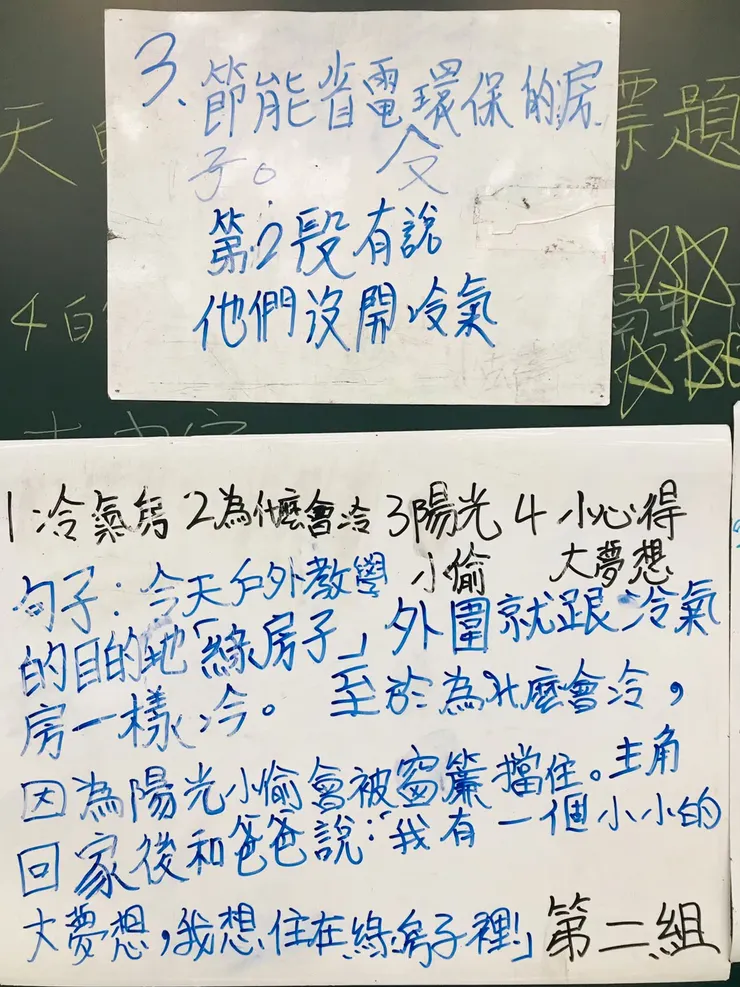 3、節能省電環保的房
子。
第2段有說
他們沒開冷氣
天
標題
4
1冷氣房 2為什麼會冷 3陽光 4 小心得
小偷 大夢想
句子：今天戶外教學
的目的地「綠房子」外圍就跟冷氣
房一樣冷。至於為什麼會冷，
因為陽光小偷會被窗簾擋住。主角
回家後和爸爸說：「我有一個小小的
大夢想，我想住在綠房子裡!」第二組